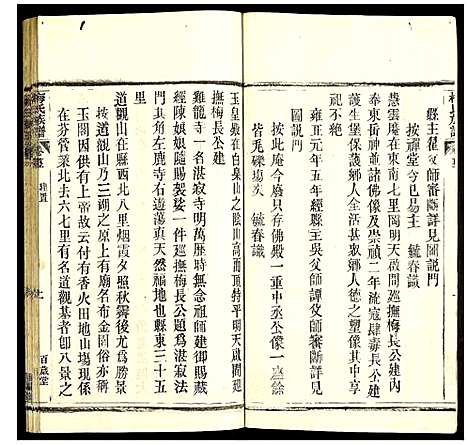 縣主翟父師審斷詳見圖說門
按禪堂今已易主　毓春識
慧雲庵在東南七里岡明天啟間巡撫梅長公建
奉東岳神畝諸佛像及崇禎二年流寇肆毒長公建
護生堡保護鄉人全活甚眾鄉人德之塑像其中享
祀不絕
雍正元年五年經縣主吳父師譚父師審斷詳見
圖說門
按此庵今廢只存佛殿一重中丞公像一尊餘
皆瓦礫瘓矣　毓春識
玉皇敫在白臬山之陰山高而頂特平明天啟間建
撫梅長公建
雞龍寺一名湛寂寺明萬歷時無念祖師建御賜藏
經陳娘娘隨賜袈裟一件巡撫梅長公題爲湛寂寺
門共九角左鹿寺右遊蕩真天然福地也縣東三十五
里
道觀山在縣西北八里烟霞夕照秋霽後尤爲勝景
按道觀山乃三湖之原上有廟名布金閣俗亦稱
玉閣因供有上帝故云付有香火田地山塲現係
在芬管業北去六七里有名道觀基者卽八景之
梅氏族譜
百歲堂